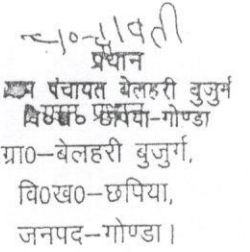 प्रधान
ग्राम पंचायत बेलहरी बुजुर्ग
वि०ख० छपिया-गोण्डा
ग्रा0-बेलहरी बुजुर्ग,
वि0ख0-छपिया,
जनपद-गोण्डा।